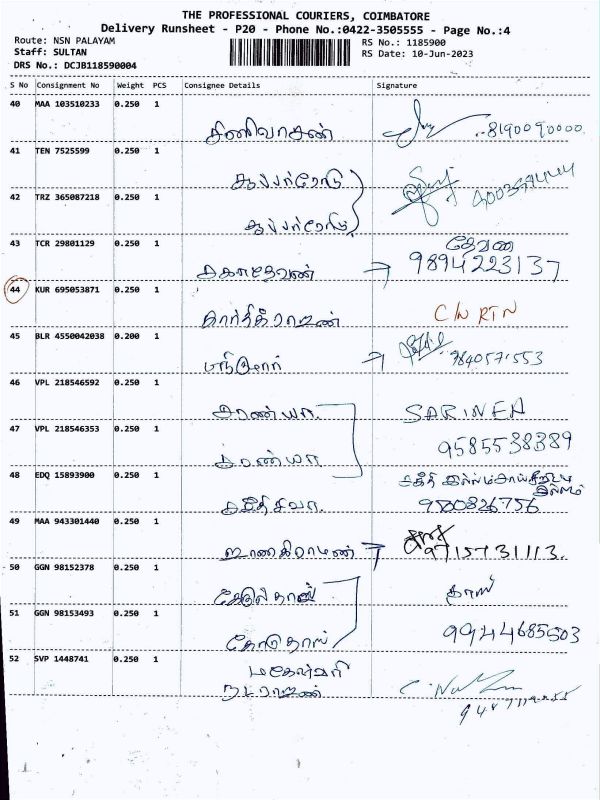 THE PROFESSIONAL COURIERS, COIMBATORE
Delivery Runsheet - P20 - Phone No.:0422-3505555 - Page No.:4
Route: NSN PALAYAM
Staff: SULTAN
DRS No.: DCJB118590004
RS No.: 1185900
RS Date: 10-Jun-2023
S No Consignment No Weight PCS Consignee Details Signature
40 MAA 103510233 0.250 1
சினிவாசன் 8190090000
41 TEN 7525599 0.250 1
42 TRZ 365087218 0.250 1
43 TCR 29801129 0.250 1
சகாதேவன் → 9894223137
44 KUR 695053871 0.250 1
கார்த்திக்ராஜன் C/N RTN
45 BLR 4550042038 0.200 1
→ 9840571553
46 VPL 218546592 0.250 1
சரண்யா. SARINEN
47 VPL 218546353 0.250 1
சரண்யா. 9585538389
48 EDQ 15893900 0.250 1
49 MAA 943301440 0.250 1
ஜானகிராமன் → 9715731113.
50 GGN 98152378 0.250 1
தாஸ்
51 GGN 98153493 0.250 1
9944685503
52 SVP 1448741 0.250 1
மகேஸ்வரி
நடராஜன்